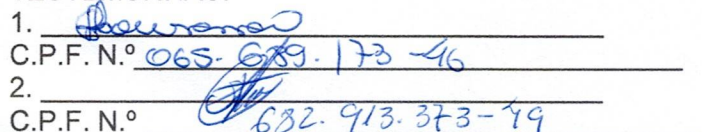 1.
C.P.F. N.º 065. 689. 173 -46
2.
C.P.F. N.º 682. 913. 373-49